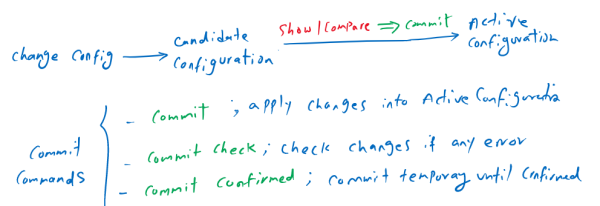 change config → candidate configuration Show | Compare ⇒ commit Active configuration
Commit Commands
- commit ; apply changes into Active Configuratio
- commit check ; check changes if any error
- commit confirmed ; commit temporay until confirmed